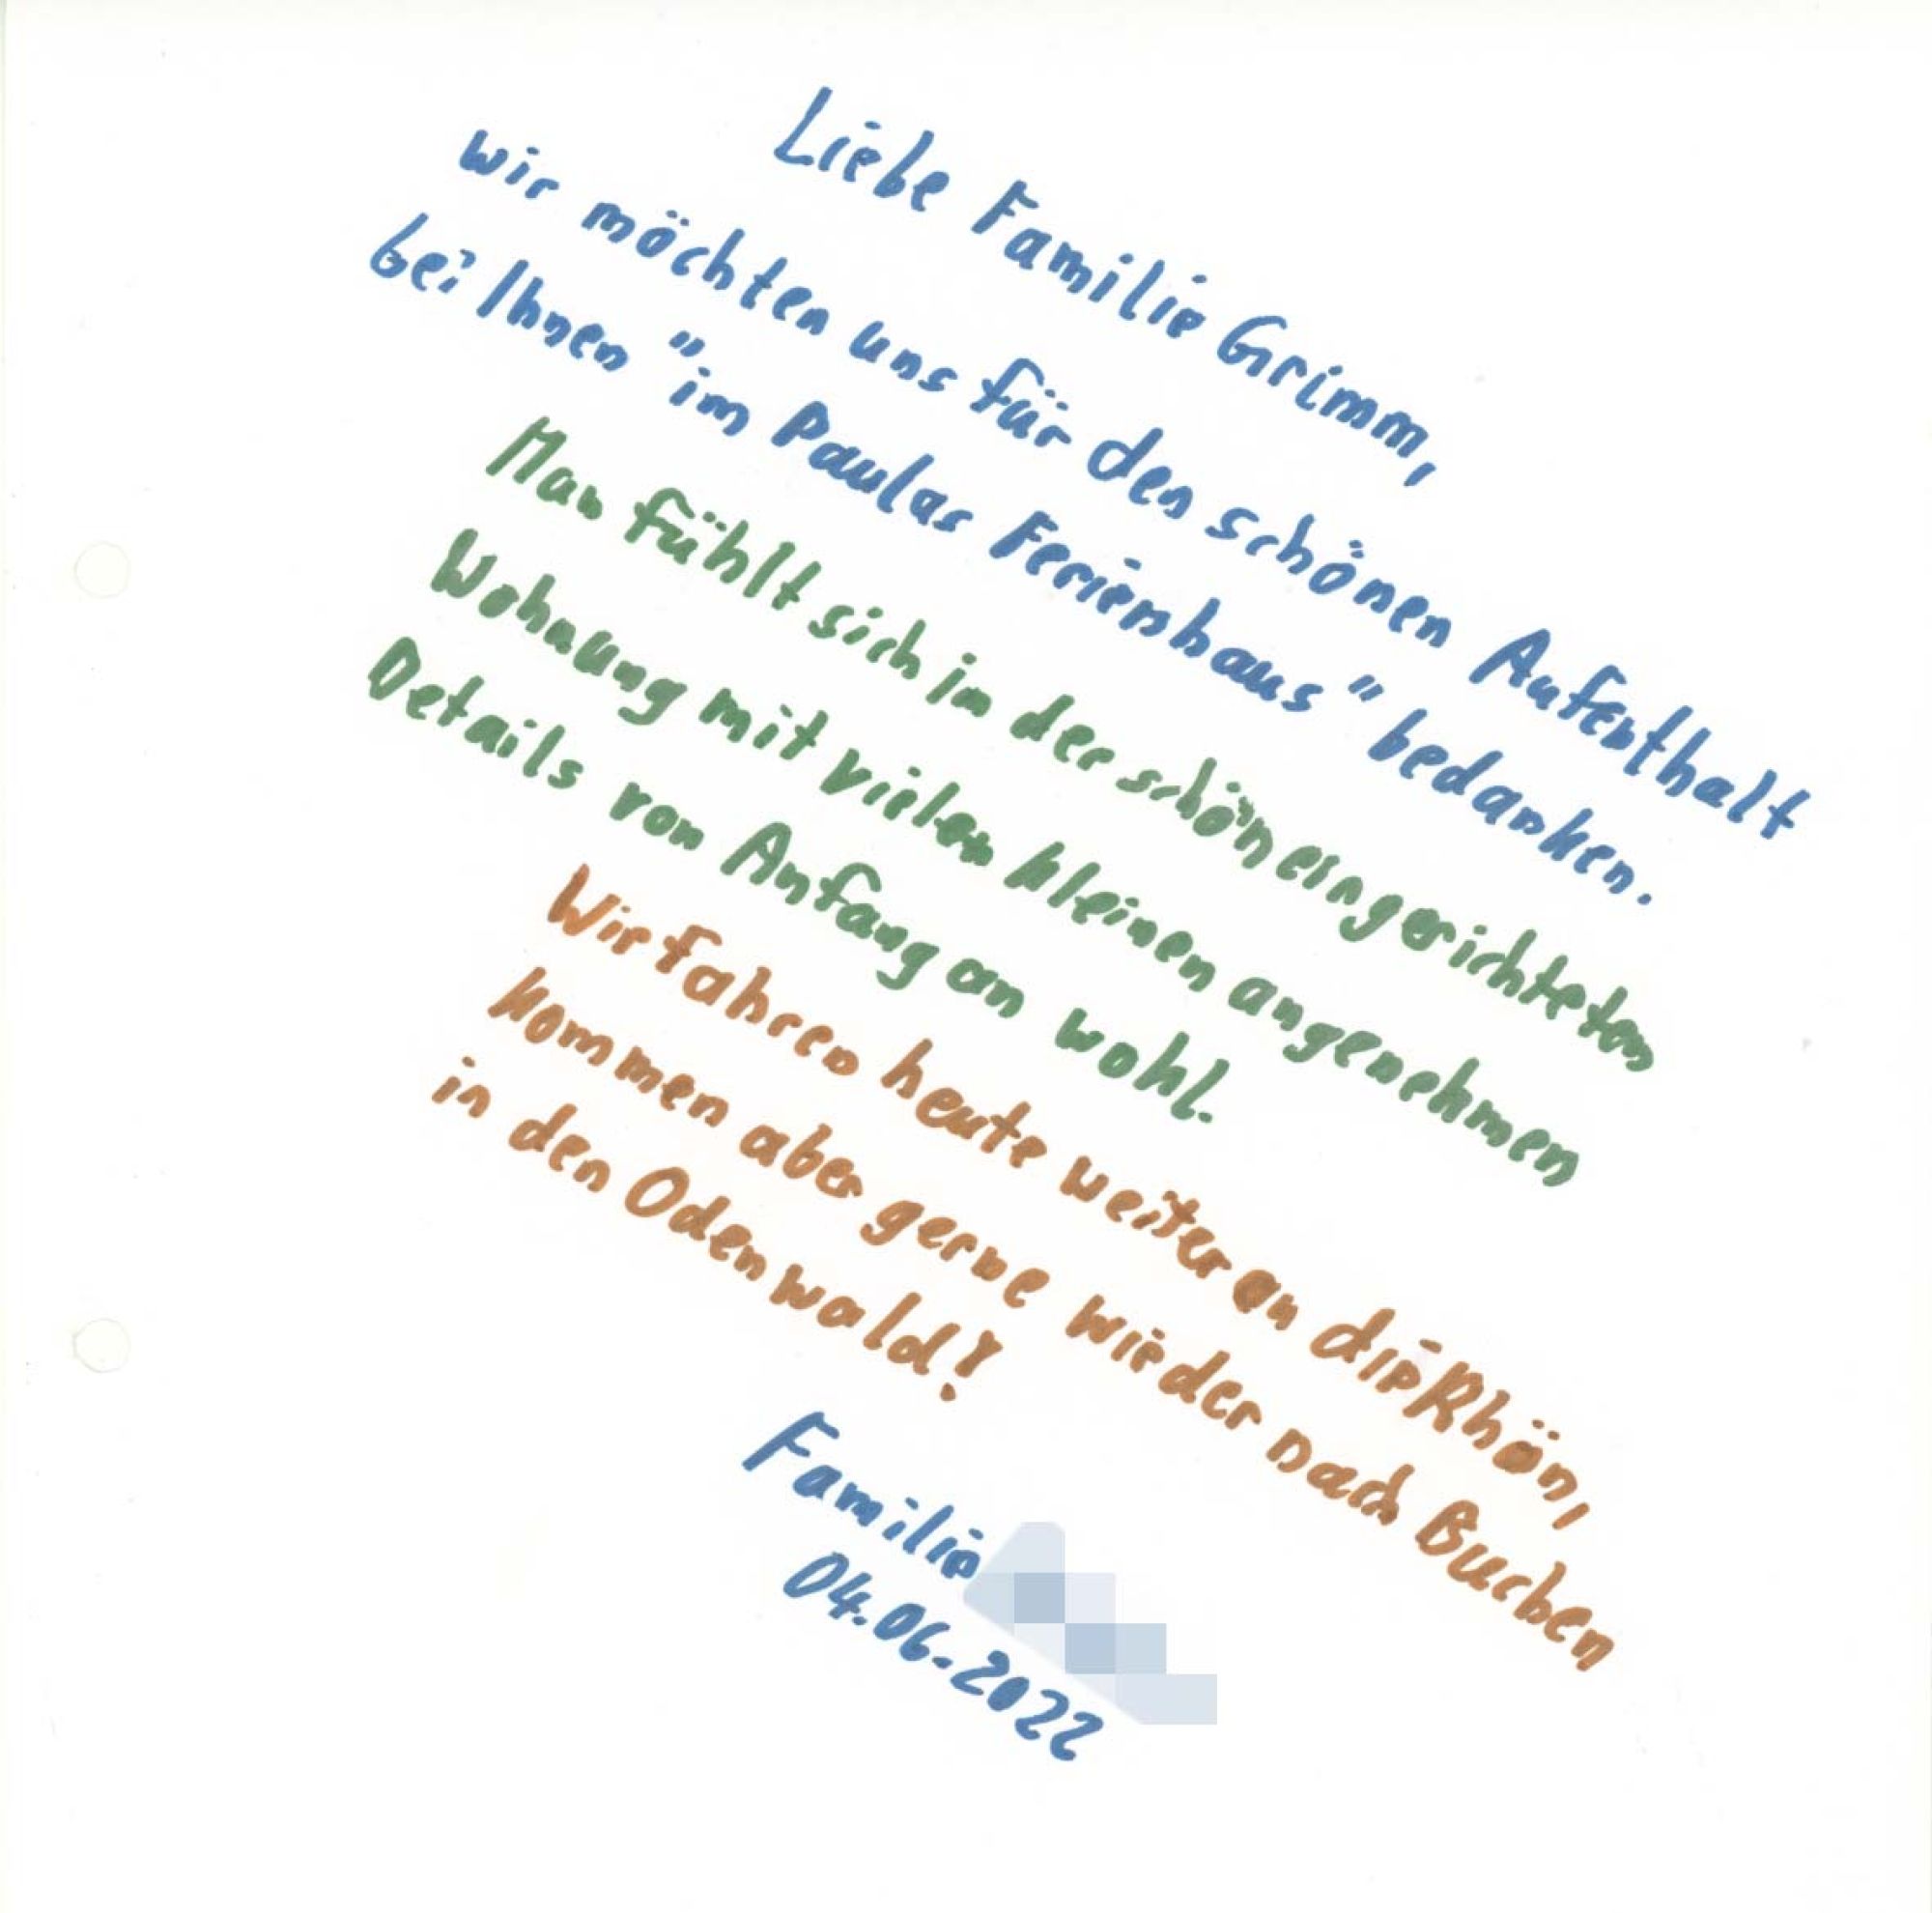 Liebe Familie Grimm,
wir möchten uns für den schönen Aufenthalt
bei Ihnen "im Paulas Ferienhaus" bedanken.
Man fühlt sich in der schön eingerichteten
Wohnung mit vielen kleinen angenehmen
Details von Anfang an wohl.
Wir fahren heute weiter an die Rhön,
kommen aber gerne wieder nach Buchen
in den Odenwald!
Familie
04.06.2022